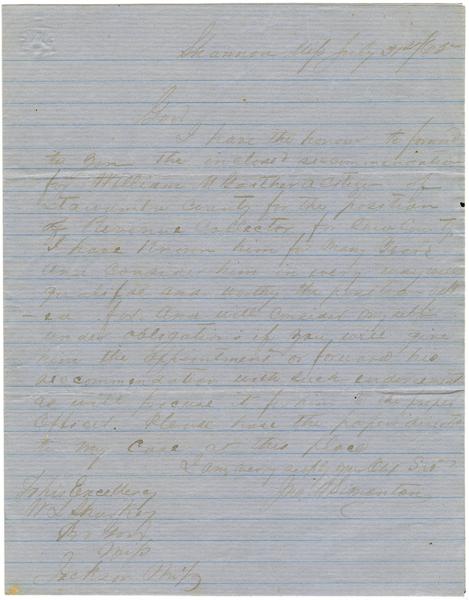 Shannon Miss July 31st/65
Gov
I have the honour to forward
to you the inclosed recommendation
for William W a citizen of
county for the position
of Revenue Collector for County
I have known him for many years
and consider him in every way well
qualified and worthy the position
for. And will consider my self
under obligations if you will give
him the appointment or forward his
recommendation with such endorsement
as will procure it for him the proper
officer. Please have the papers directed
to my care at this place
I am very respt your Obt Svt
Jno
To his Excellency
W L Sharkey
Pr Gov
Miss
Jackson Miss